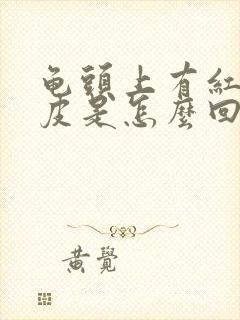 龟頭上有紅
皮是怎麼回
黄覺